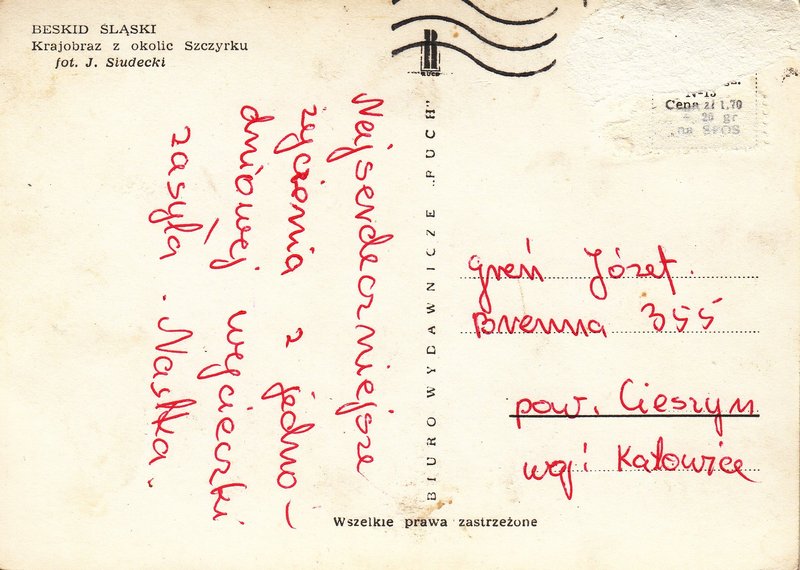 BESKID ŚLĄSKI
Krajobraz z okolic Szczyrku
fot. J. Siudecki
RUCH
Cena zł 1,70
+ 20 gr
na SFOS
Najserdeczniejsze
życzenia z jedno-
dniowej wycieczki
zasyła . Nastka.
BIURO WYDAWNICZE „RUCH"
Greń Józef.
Brenna 355
pow. Cieszyn
woj. Katowice
Wszelkie prawa zastrzeżone